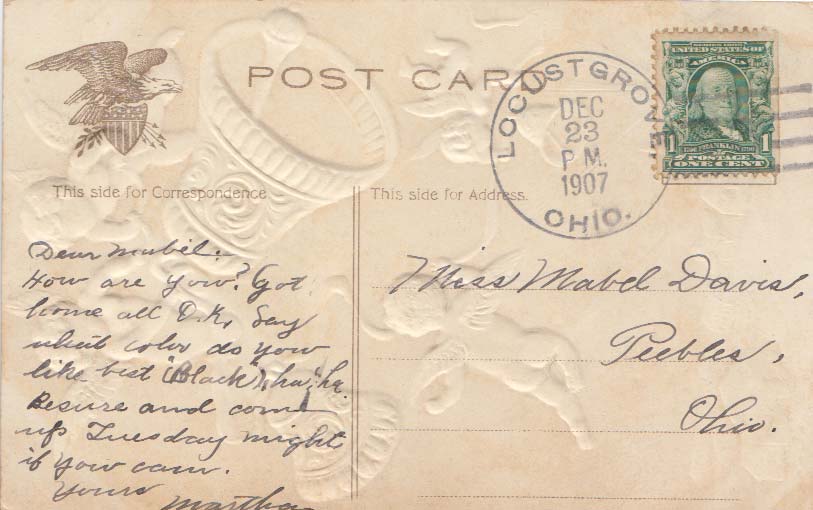 POST CARD
LOCUST GROVE
DEC
23
P M.
1907
OHIO.
SERIES 1902
UNITED STATES OF
AMERICA
1 FRANKLIN 1
POSTAGE
ONE CENT
This side for Correspondence
This side for Address.
Dear Mabel:
How are you? Got
home all O.K. Say
what color do you
like best "(Black") ha, ha.
Besure and come
up Tuesday night
if you can.
Yours
Martha
Miss Mabel Davis,
Peebles,
Ohio.